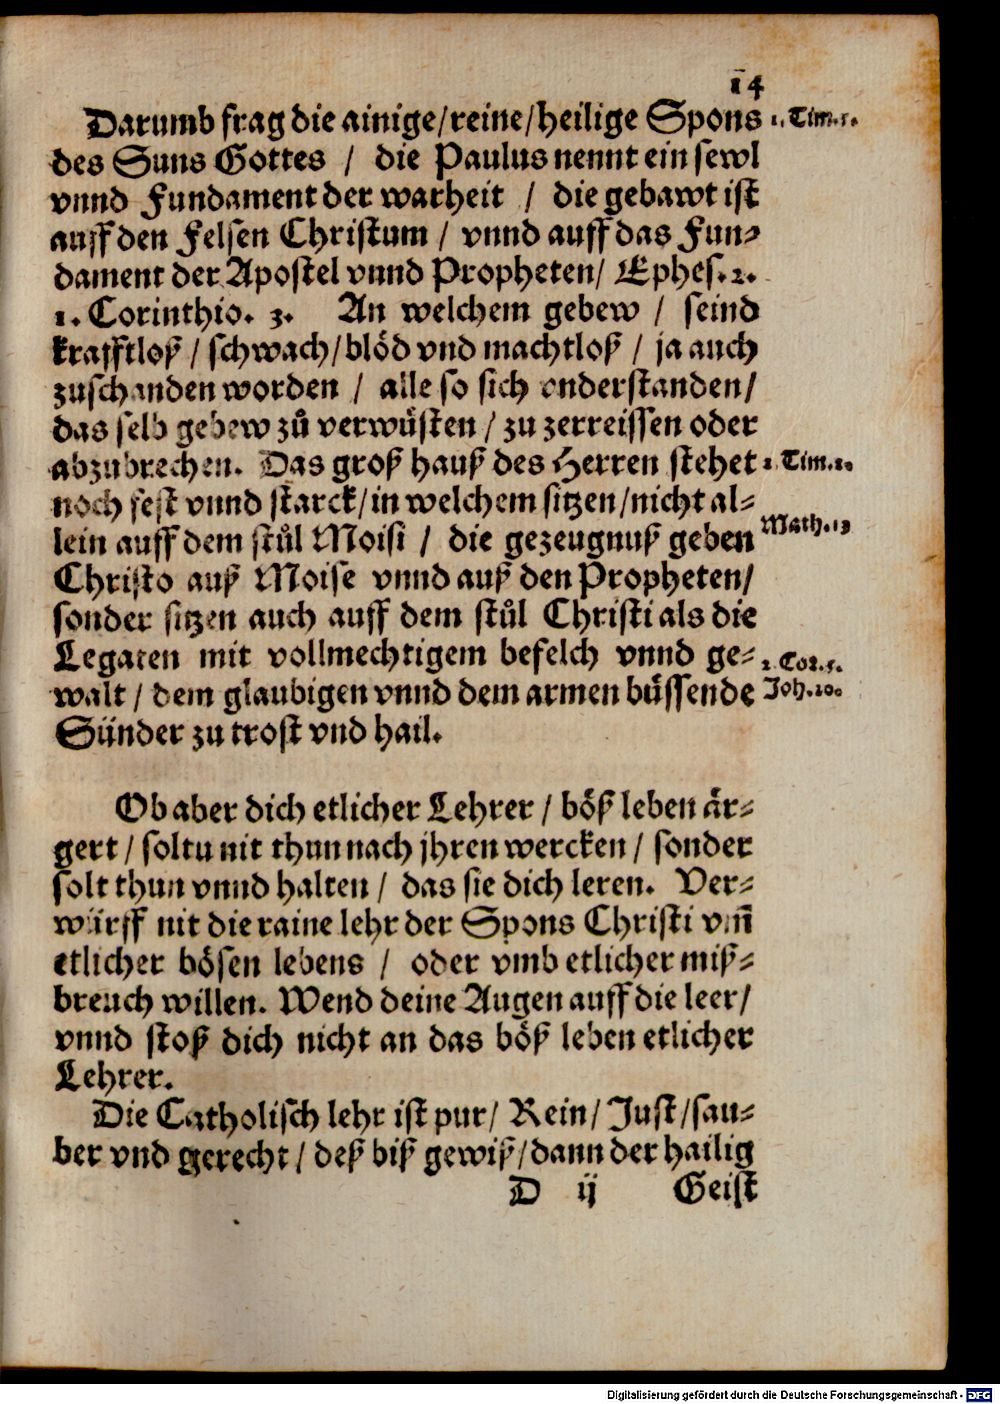 14
Darumb frag die ainige/reine/heilige Spons 1. Tim. 5.
des Suns Gottes / die Paulus nennt ein sewl
vnnd Fundament der warheit / die gebawt ist
auff den Felsen Christum / vnnd auff das Fun⸗
dament der Apostel vnnd Propheten/ Ephes. 2.
1. Corinthio. 3. An welchem gebew / seind
krafftloß / schwach/blöd vnd machtloß / ja auch
zuschanden worden / alle so sich vnderstanden/
das selb gebew zů verwüsten / zu zerreissen oder
abzubrechen. Das groß hauß des Herren stehet 2 Tim. 2.
noch fest vnnd starck/in welchem sitzen/nicht al⸗
lein auff dem stůl Moisi / die gezeugnuß geben Math. 13
Christo auß Moise vnnd auß den Propheten/
sonder sitzen auch auff dem stůl Christi als die
Legaten mit vollmechtigem befelch vnnd ge⸗ 2 Cor. 5.
walt / dem glaubigen vnnd dem armen büssende Joh. 20.
Sünder zu trost vnd hail.
Ob aber dich etlicher Lehrer / böß leben är⸗
gert / soltu nit thun nach jhren wercken / sonder
solt thun vnnd halten / das sie dich leren. Ver⸗
würff nit die raine lehr der Spons Christi vm̄
etlicher bösen lebens / oder vmb etlicher miß⸗
breuch willen. Wend deine Augen auff die leer/
vnnd stoß dich nicht an das böß leben etlicher
Lehrer.
Die Catholisch lehr ist pur/ Rein/ Just/sau⸗
ber vnd gerecht / deß biß gewiß/dann der hailig
D ij Geist
Digitalisierung gefördert durch die Deutsche Forschungsgemeinschaft - DFG